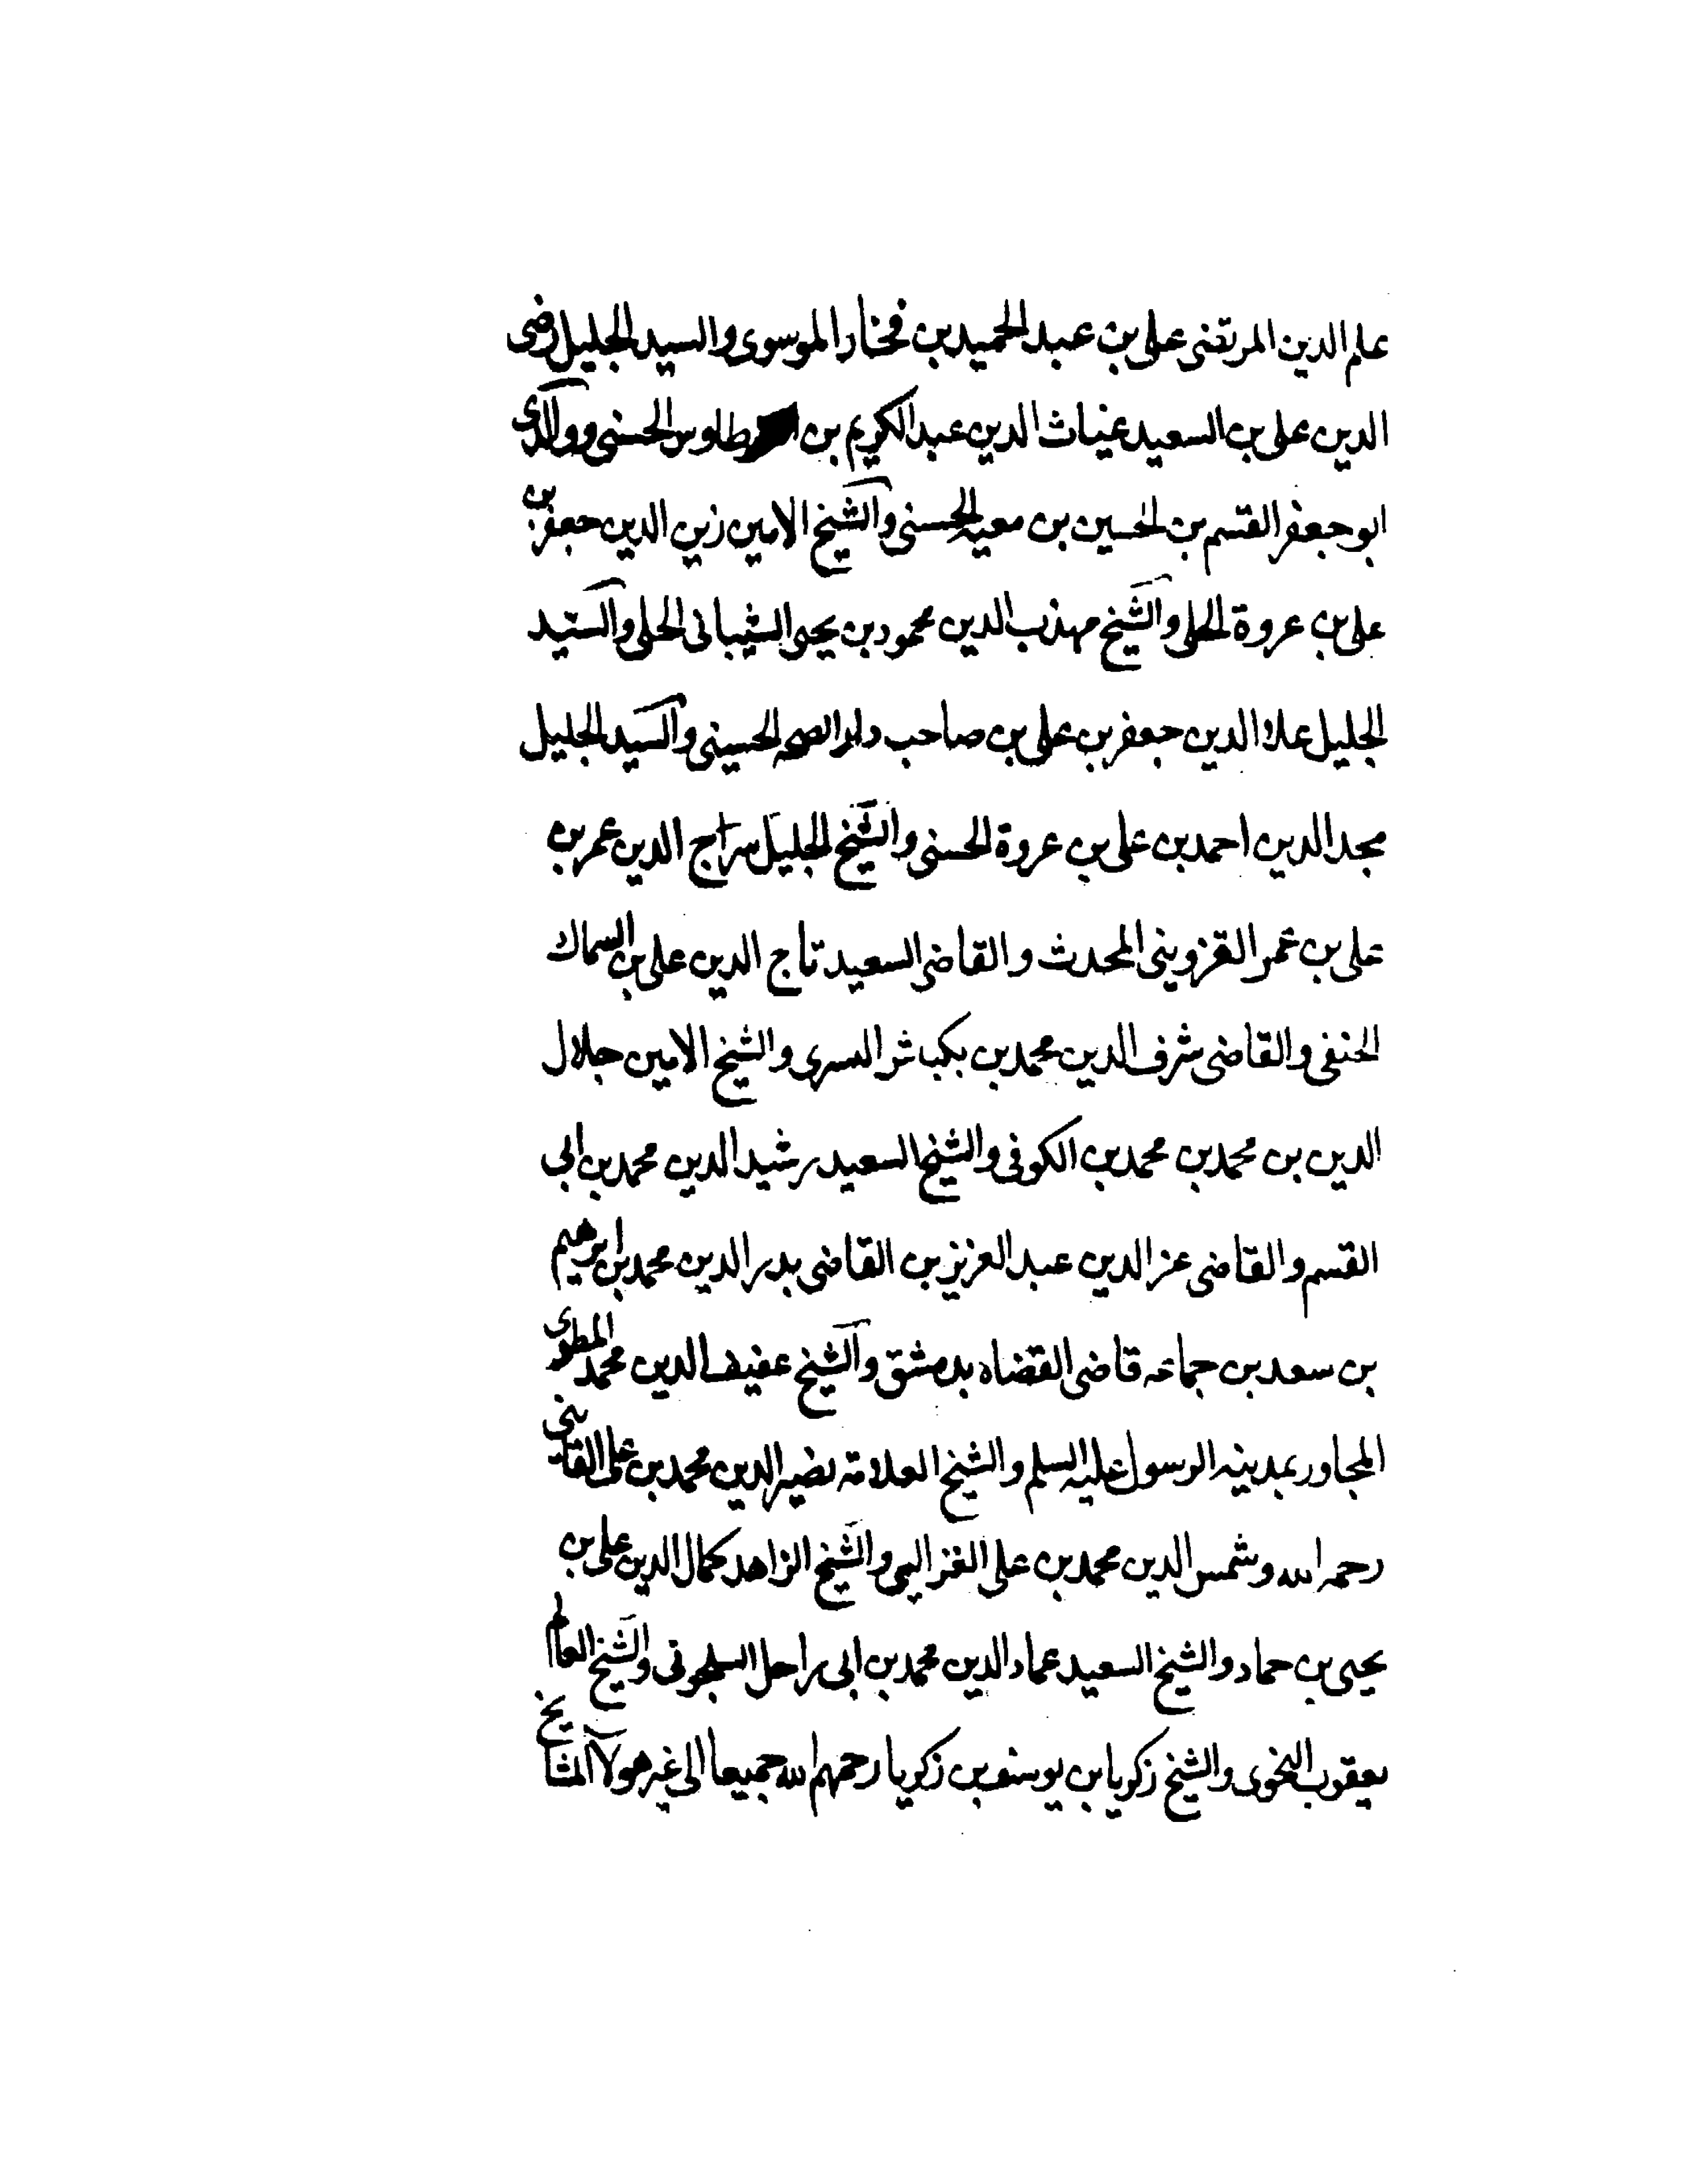 علم الدين المرتضى على بن عبد الحميد بن فخار الموسوى والسيد الجليل رضى
الدين على بن السعيد غياث الدين عبد الكريم بن طاوس الحسنى ووالدى
ابو جعفر القسم بن الحسين بن معيه الحسنى والشيخ الامين زين الدين جعفر بن
على بن عروة الحلى والشيخ مهذب الدين محمود بن يحيى الشيبانى الحلى والسيد
الجليل علاء الدين جعفر بن على بن صاحب دار الصخر الحسينى والسيد الجليل
مجد الدين احمد بن على بن عروة الحسنى والشيخ الجليل سراج الدين عمر بن
على بن عمر القزوينى المحدث والقاضى السعيد تاج الدين على بن السماك
الحنفى والقاضى شرف الدين محمد بن بكباش السرى والشيخ الامين جلال
الدين بن محمد بن محمد بن الكوفى والشيخ السعيد رشيد الدين محمد بن ابى
القسم والقاضى عز الدين عبد العزيز بن القاضى بدر الدين محمد بن ابرهيم
بن سعد بن جماعه قاضى القضاه بدمشق والشيخ عفيف الدين محمد المطرى
المجاور بمدينه الرسول عليه السلم والشيخ العلامة نصير الدين محمد بن على القاينى
رحمه الله وشمس الدين محمد بن على الغزالى والشيخ الزاهد كمال الدين على بن
يحيى بن حماد والشيخ السعيد عماد الدين محمد بن ابى راحل السلجوقى والشيخ العالم
يعقوب النحوى والشيخ زكريا بن يوسف بن زكريا رحمهم الله جميعا الى غير هولآ المشايخ